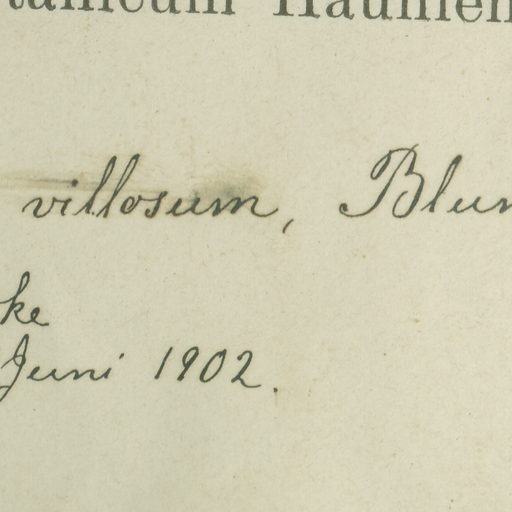 tanicum Haunien
villosum, Blum
ke
Juni 1902.